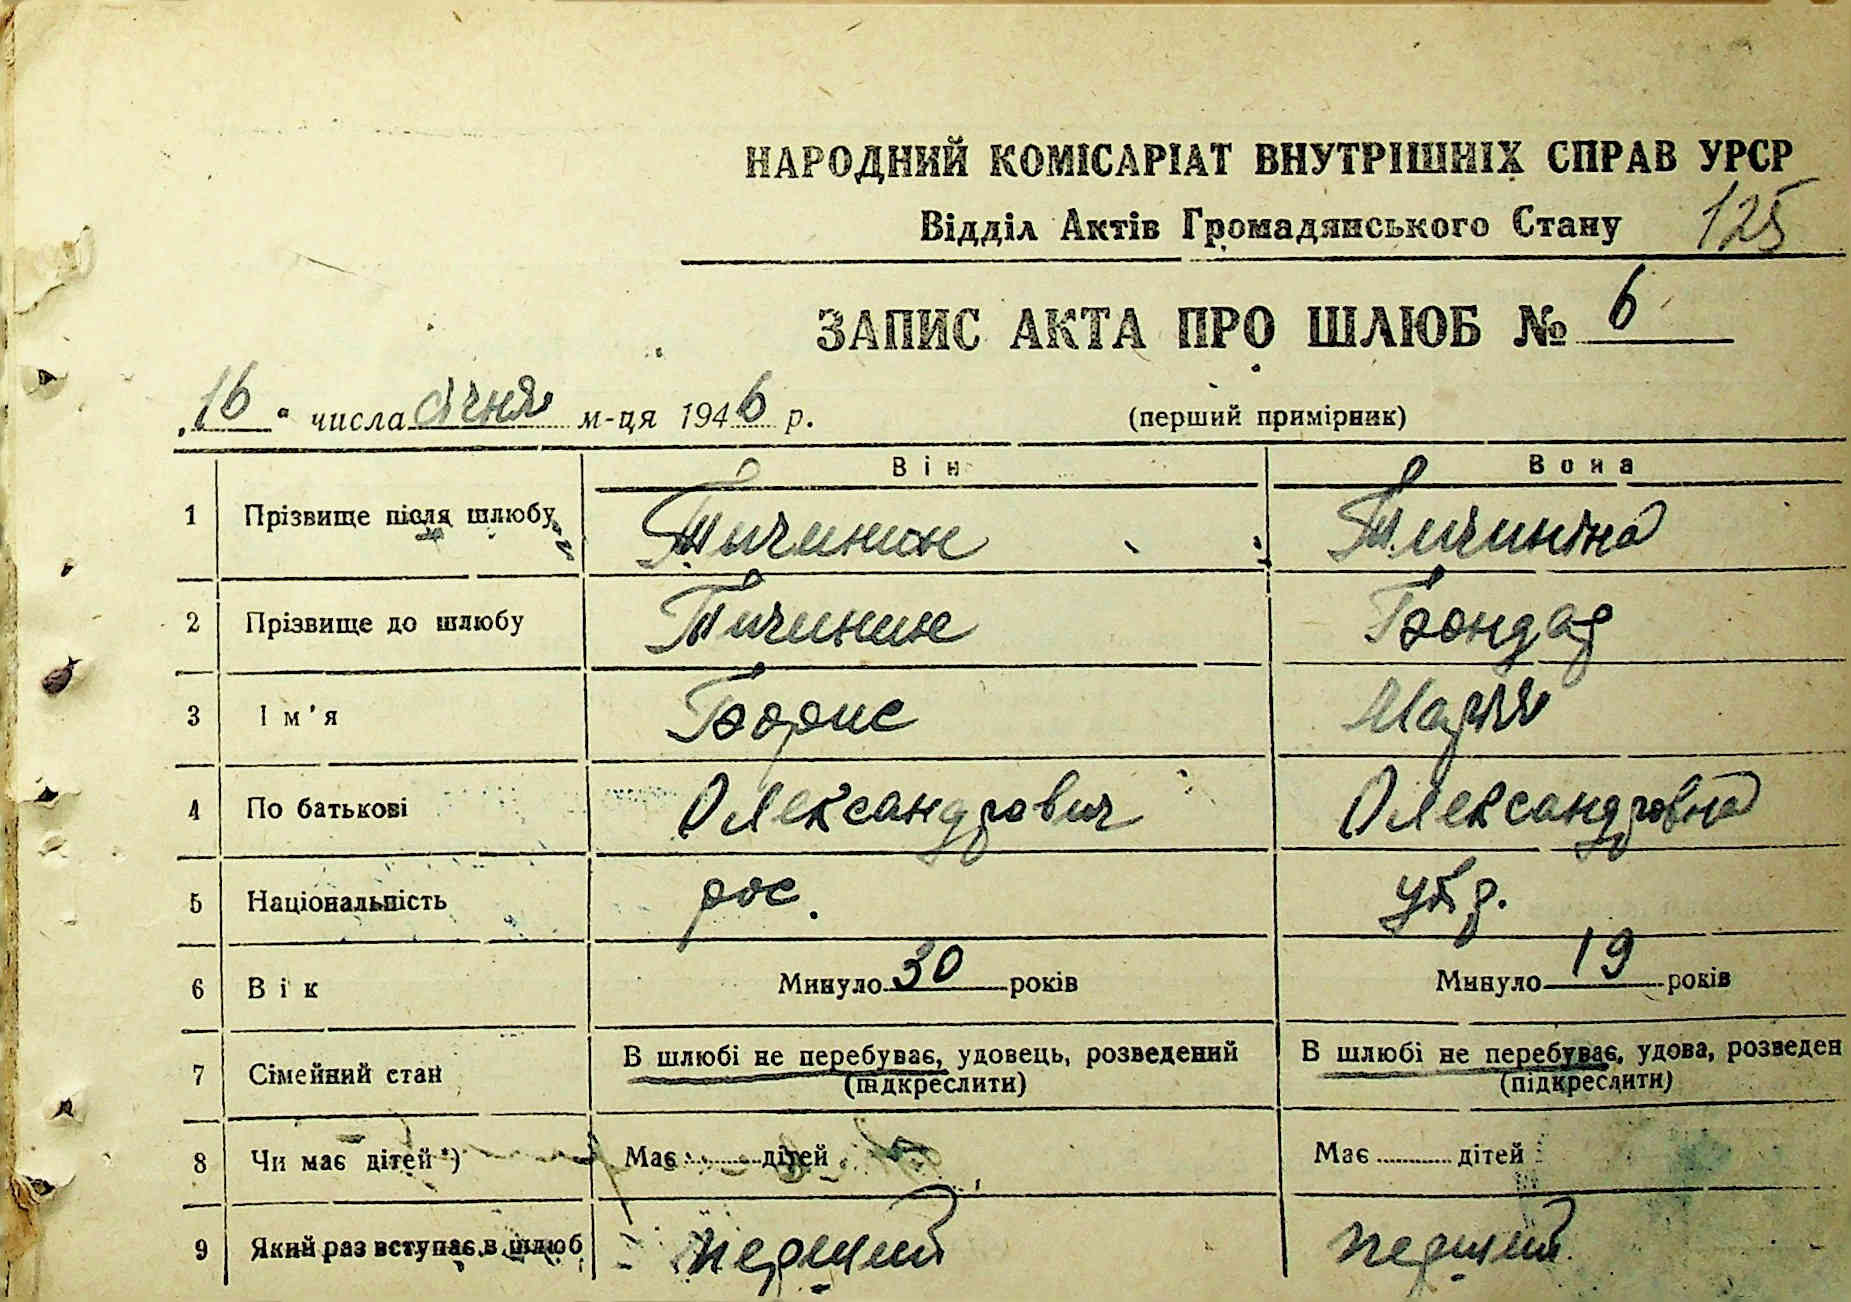 НАРОДНИЙ КОМІСАРІАТ ВНУТРІШНІХ СПРАВ УРСР
Відділ Актів Громадянського Стану 125
ЗАПИС АКТА ПРО ШЛЮБ № 6
„16“ числа січня м-ця 1946 р. (перший примірник)
Він Вона
1 Прізвище після шлюбу Тичинин Тичиніна
2 Прізвище до шлюбу Тичинин Бондар
3 Ім'я Борис Марія
4 По батькові Олександрович Олександровна
5 Національність рос. укр.
6 Вік Минуло 30 років Минуло 19 років
7 Сімейний стан В шлюбі не перебуває, удовець, розведений В шлюбі не перебуває, удова, розведен
(підкреслити) (підкреслити)
8 Чи має дітей*) Має ........ дітей Має ........ дітей
9 Який раз вступає в шлюб перший перший